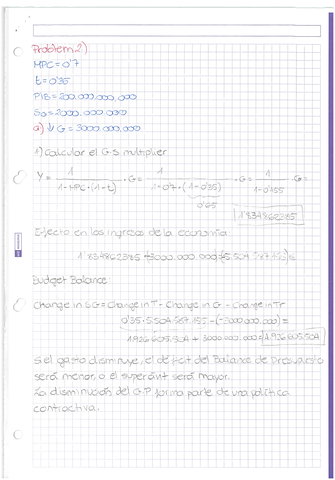 Problem 2)
MPC = 0'7
t = 0'35
PIB = 200.000.000.000
S0 = 2000.000.000
a) ↓ G = 3000.000.000
1) Calcular el G.S multiplier
Y = 1 / 1 - MPC · (1 - t) · G = 1 / 1 - 0'7 · (1 - 0'35) · G = 1 / 1 - 0'455
0'65
1'834862385
Efecto en los ingresos de la economía
1'834862385 · 3000.000.000 = 5.504.587.155
Budget Balance
Change in SG = Change in T - Change in G - Change in Tr
0'35 · 5.504.587.155 - (-3000.000.000) =
1.926.605.504 + 3000.000.000 = 4.926.605.504
Si el gasto disminuye, el déficit del Balance de Presupuesto
será menor, o el superávit será mayor.
La disminución del G.P forma parte de una política
contractiva.